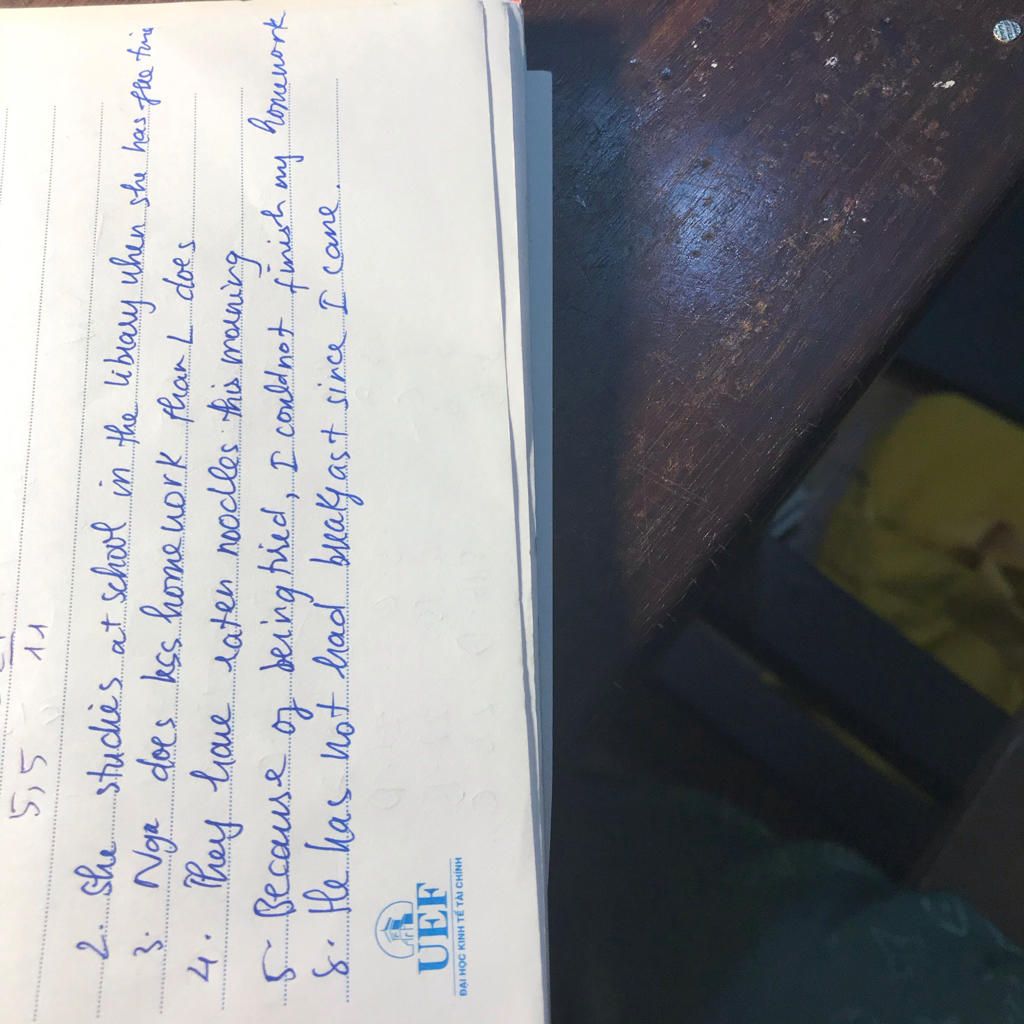 5,5 11
2. She studies at school in the library when she has the time
3. Nga does less homework than L does
4. They have eaten noodles this morning
5. Because of being tired, I couldnot finish my homework
8. He has not had breakfast since I came.
UEF
ĐẠI HỌC KINH TẾ TÀI CHÍNH